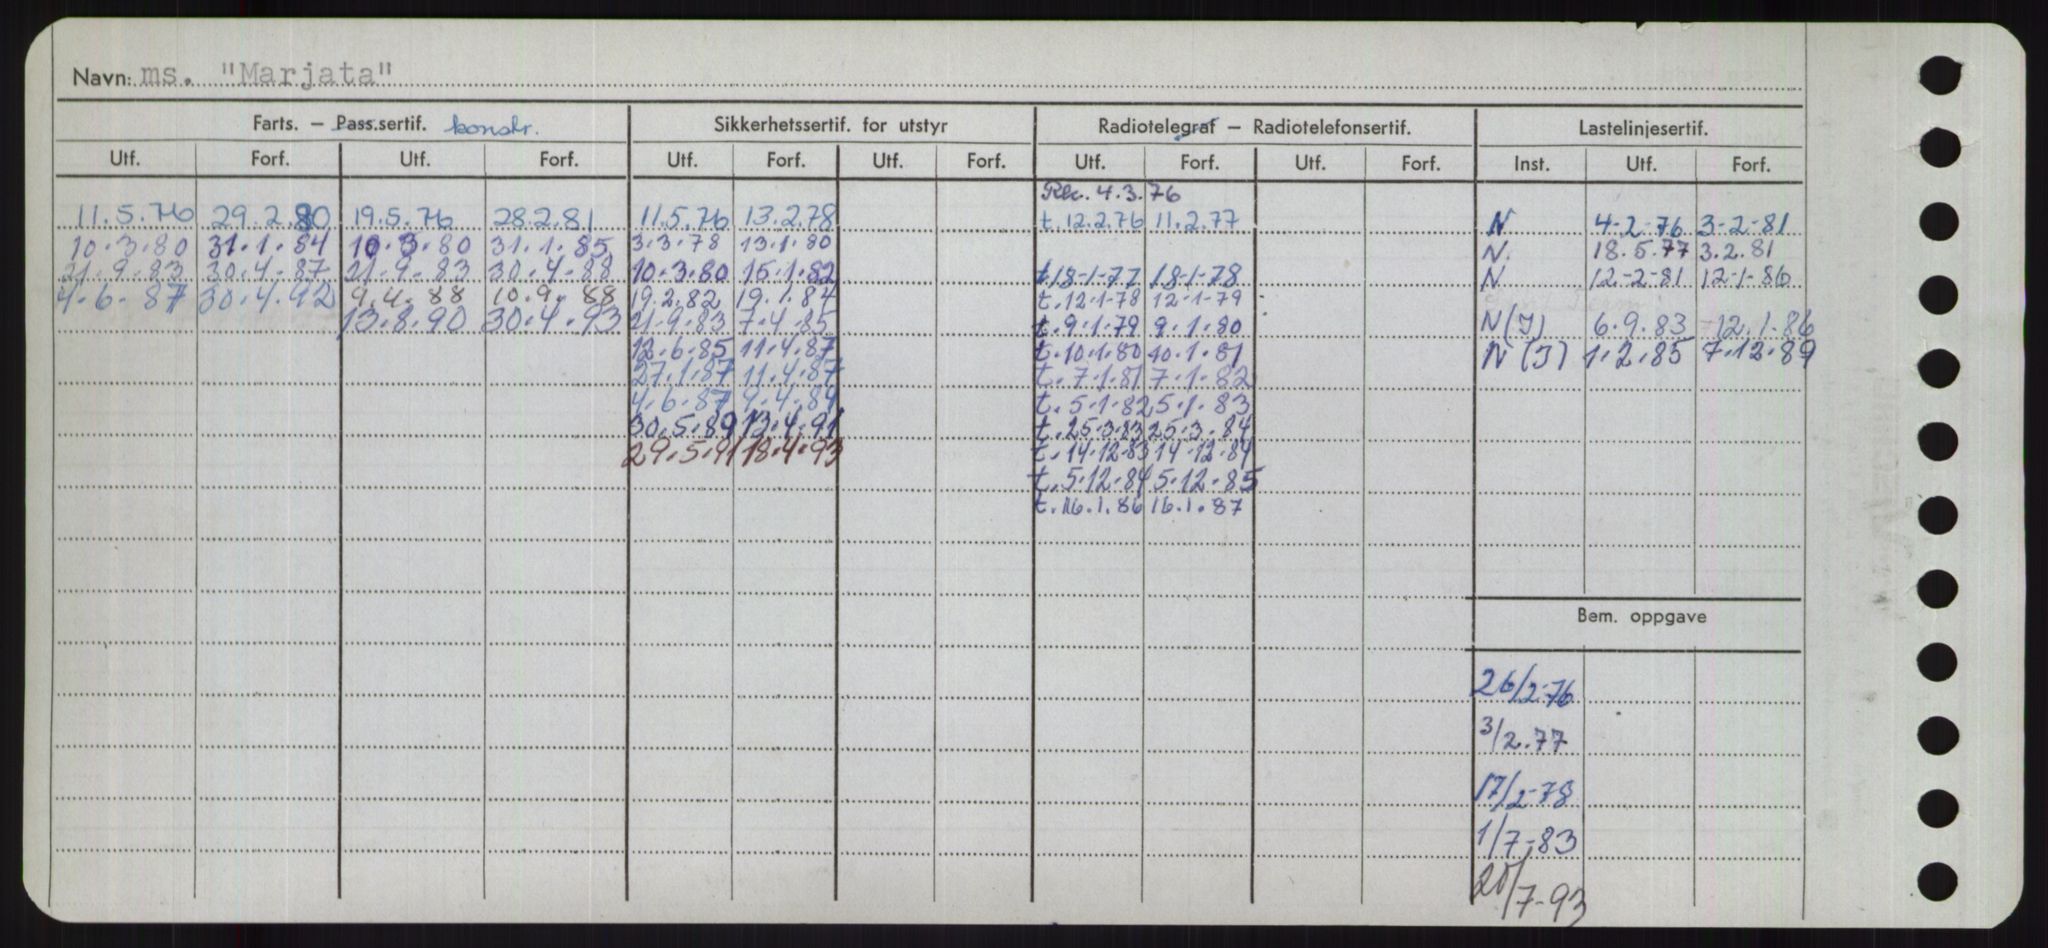 Navn: ms. "Marjata"
Farts. – Pass.sertif. konstr. Sikkerhetssertif. for utstyr Radiotelegraf – Radiotelefonsertif. Lastelinjesertif.
Utf. Forf. Utf. Forf. Utf. Forf. Utf. Forf. Utf. Forf. Utf. Forf. Inst. Utf. Forf.
Rec. 4.3.76
11.5.76 29.2.80 19.5.76 28.2.81 11.5.76 13.2.78 t. 12.2.76 11.2.77 N 4-2-76 3-2-81
10.3.80 31.1.84 10.3.80 31.1.85 3.3.78 13.1.80 N. 18.5.77 3.2.81
21.9.83 30.4.87 21.9.83 30.4.88 10.3.80 15.1.82 t 18-1-77 18-1-78 N 12-2-81 12-1-86
4.6.87 30.4.92 9.4.88 10.9.88 19.2.82 19.1.84 t. 12-1-78 12-1-79
13.8.90 30.4.93 21.9.83 7.4.85 t. 9.1.79 9.1.80 N (J) 6.9.83 12.1.86
12.6.85 11.4.87 t. 10.1.80 10.1.81 N (J) 1.2.85 7.12.89
27.1.87 11.4.87 t. 7.1.81 7.1.82
4.6.87 9.4.89 t. 5.1.82 5.1.83
30.5.89 13.4.91 t. 25.3.83 25.3.84
29.5.91 18.4.93 t. 14.12.83 14-12-84
t. 5.12.84 5.12.85
t. 16.1.86 16.1.87
Bem. oppgave
26/2-76
3/2.77
17/2-78
1/7-83
20/7-93